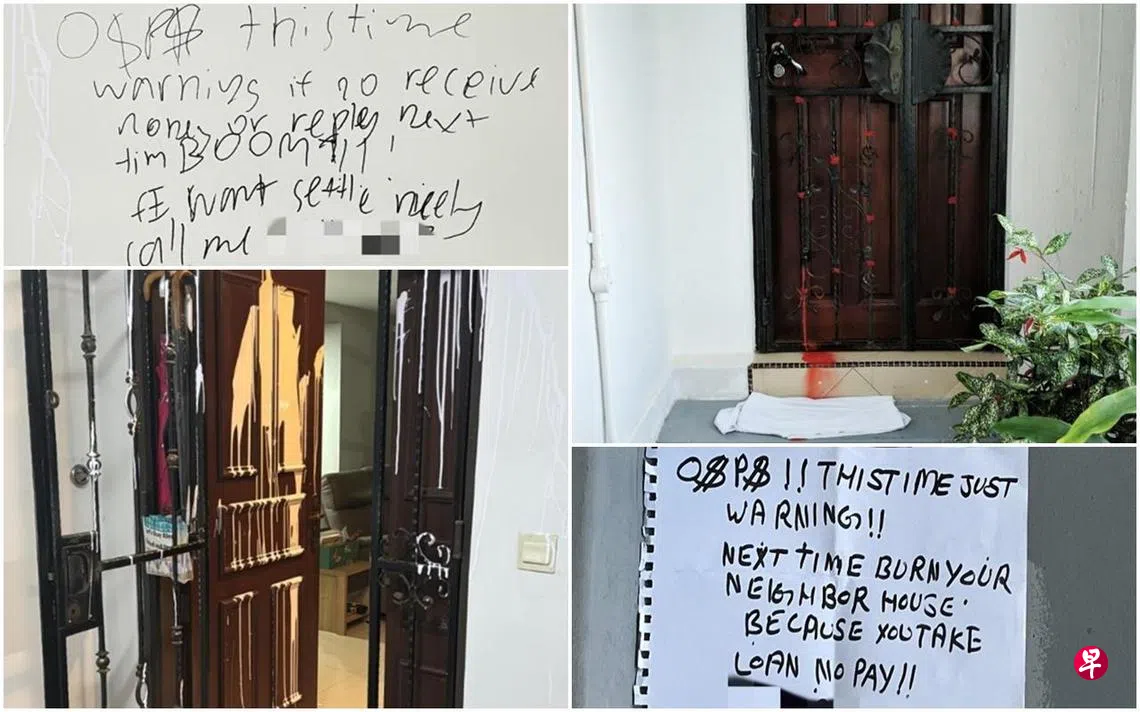 O$P$ this time
warning if no receive
money or reply next
tim BOOM!!!
I want settle nicely
call me
O$P$!! THIS TIME JUST
WARNING!!
NEXT TIME BURN YOUR
NEIGHBOR HOUSE.
BECAUSE YOU TAKE
LOAN NO PAY!!
早